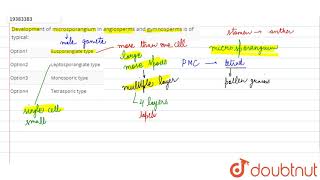 19383383
Development of microsporangium in angiosperms and gymnosperms is of typical:
Option1 Eusporangiate type
Option2 Leptosporangiate type
Option3 Monosporic type
Option4 Tetrasporic type
male gamete
more than one cell
large
more spods
multiple layer
4 layers
single cell
small
stamen → anther
microsporangium
PMC → tetrad
pollen grains
doubtnut